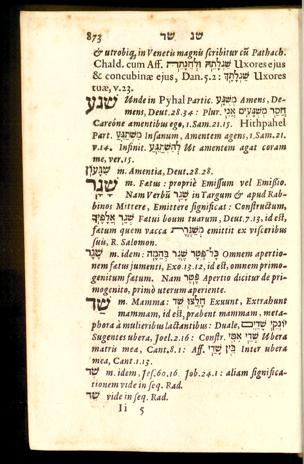 873 שנ שד
& utrobiq, in Venetis magnis scribitur cũ Pathach.
Chald. cum Aff. שֵׁגְלָתֵהּ וּלְחֵנָתֵהּ Uxores ejus
& concubinæ ejus, Dan. 5. 2: שֵׁגְלָתָךְ Uxores
tuæ, v. 23.
שגע Unde in Pyhal Partic. מְשֻׁגָּע Amens, De-
mens, Deut. 28. 34: Plur. חֲסַר מְשֻׁגָּעִים אָנִי
Careóne amentibus ego, 1. Sam. 21. 15. Hithpahel
Part. מִשְׁתַּגֵּעַ Insanum, Amentem agens, 1. Sam. 21.
v. 14. Infinit. לְהִשְׁתַּגֵּעַ Ut amentem agat coram
me, ver. 15.
שִׁגָּעוֹן m. Amentia, Deut. 28. 28.
שֶׁגֶר m. Fatus: propriè Emissum vel Emissio.
Nam Verbũ שגר in Targum & apud Rab-
binos Mittere, Emittere significat: Constructum,
שְׁגַר אֲלָפֶיךָ Fatui boum tuarum, Deut. 7. 13, id est,
fatum quem vacca מְשַׁגֶּרֶת emittit ex visceribus
suis, R. Salomon.
שֶׁגֶר m. idem: כָּל־פֶּטֶר שֶׁגֶר בְּהֵמָה Omnem apertio-
nem fatus jumenti, Exo. 13. 12, id est, omnem primo-
genitum fatum. Nam פֶּטֶר Apertio dicitur de pri-
mogenito, primò uterum aperiente.
שַׁד m. Mamma: חָלְצוּ שַׁד Exuunt, Extrahunt
mammam, id est, præbent mammam, meta-
phora à mulieribus lactantibus: Duale, יוֹנְקֵי שָׁדָיִם
Sugentes ubera, Joel. 2. 16: Constr. שְׁדֵי אִמִּי Ubera
matris meæ, Cant. 8. 1: Aff. בֵּין שָׁדַי Inter ubera
mea, Cant. 1. 13.
שֹׁד m. idem, Jes. 60. 16. Job. 24. 1: aliam significa-
tionem vide in seq. Rad.
שֵׁד vide in seq. Rad.
Ii 5